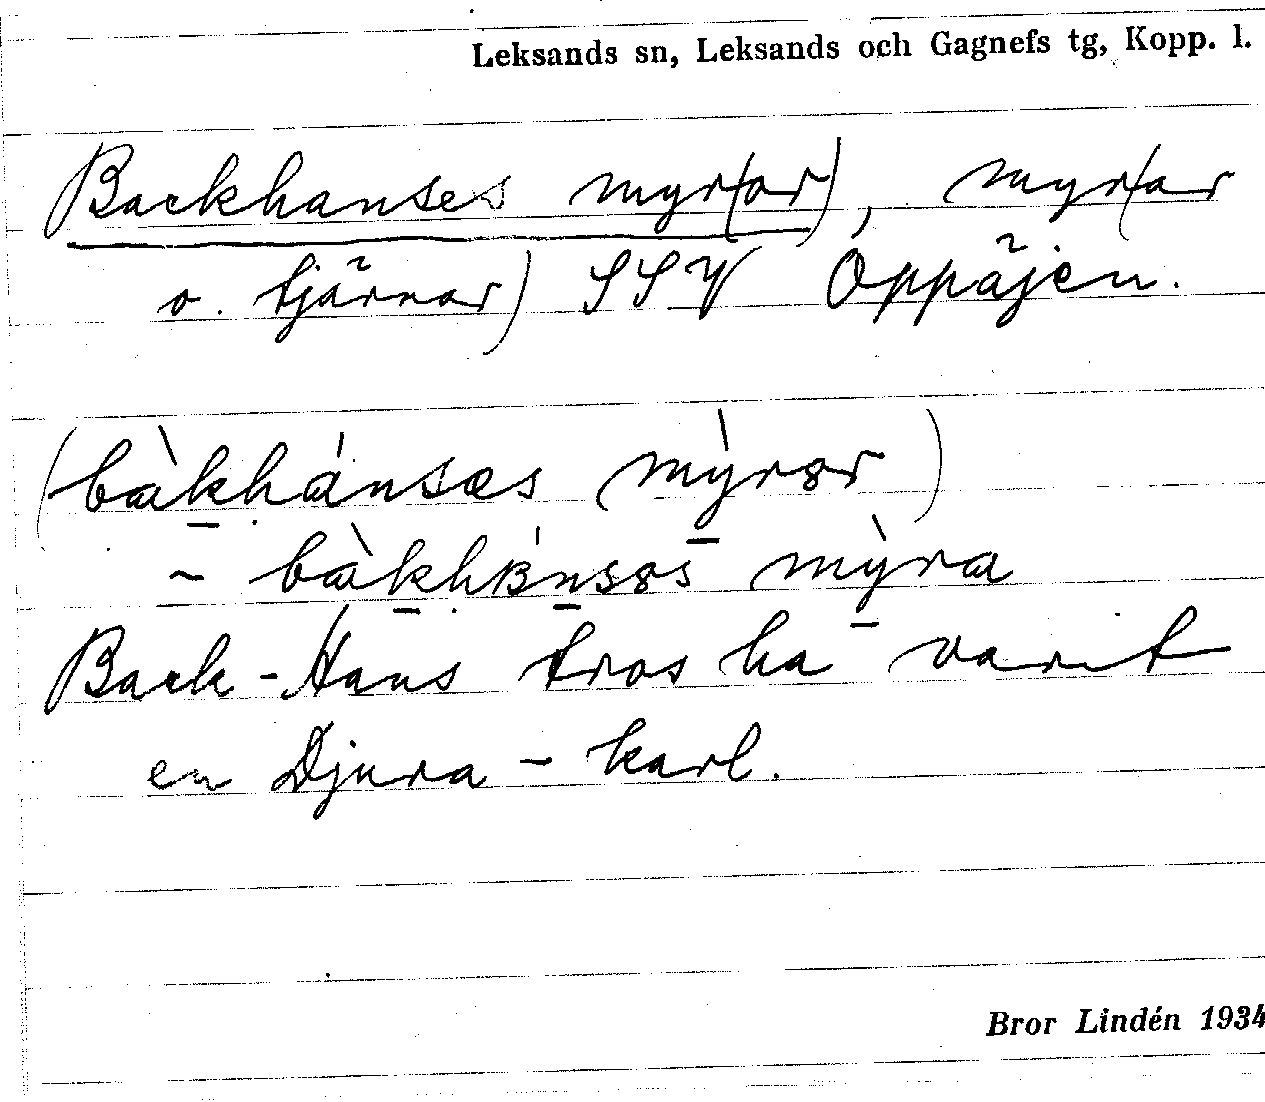 Leksands sn, Leksands och Gagnefs tg, Kopp. l.
Backhanses myr(ar), myr(ar
o. tjärnar) SSV Oppåjen.
(bàkhánsæs mỳrar)
~ bàkhánsøs mỳra
Back-Hans tros ha varit
en Djura-karl.
Bror Lindén 1934